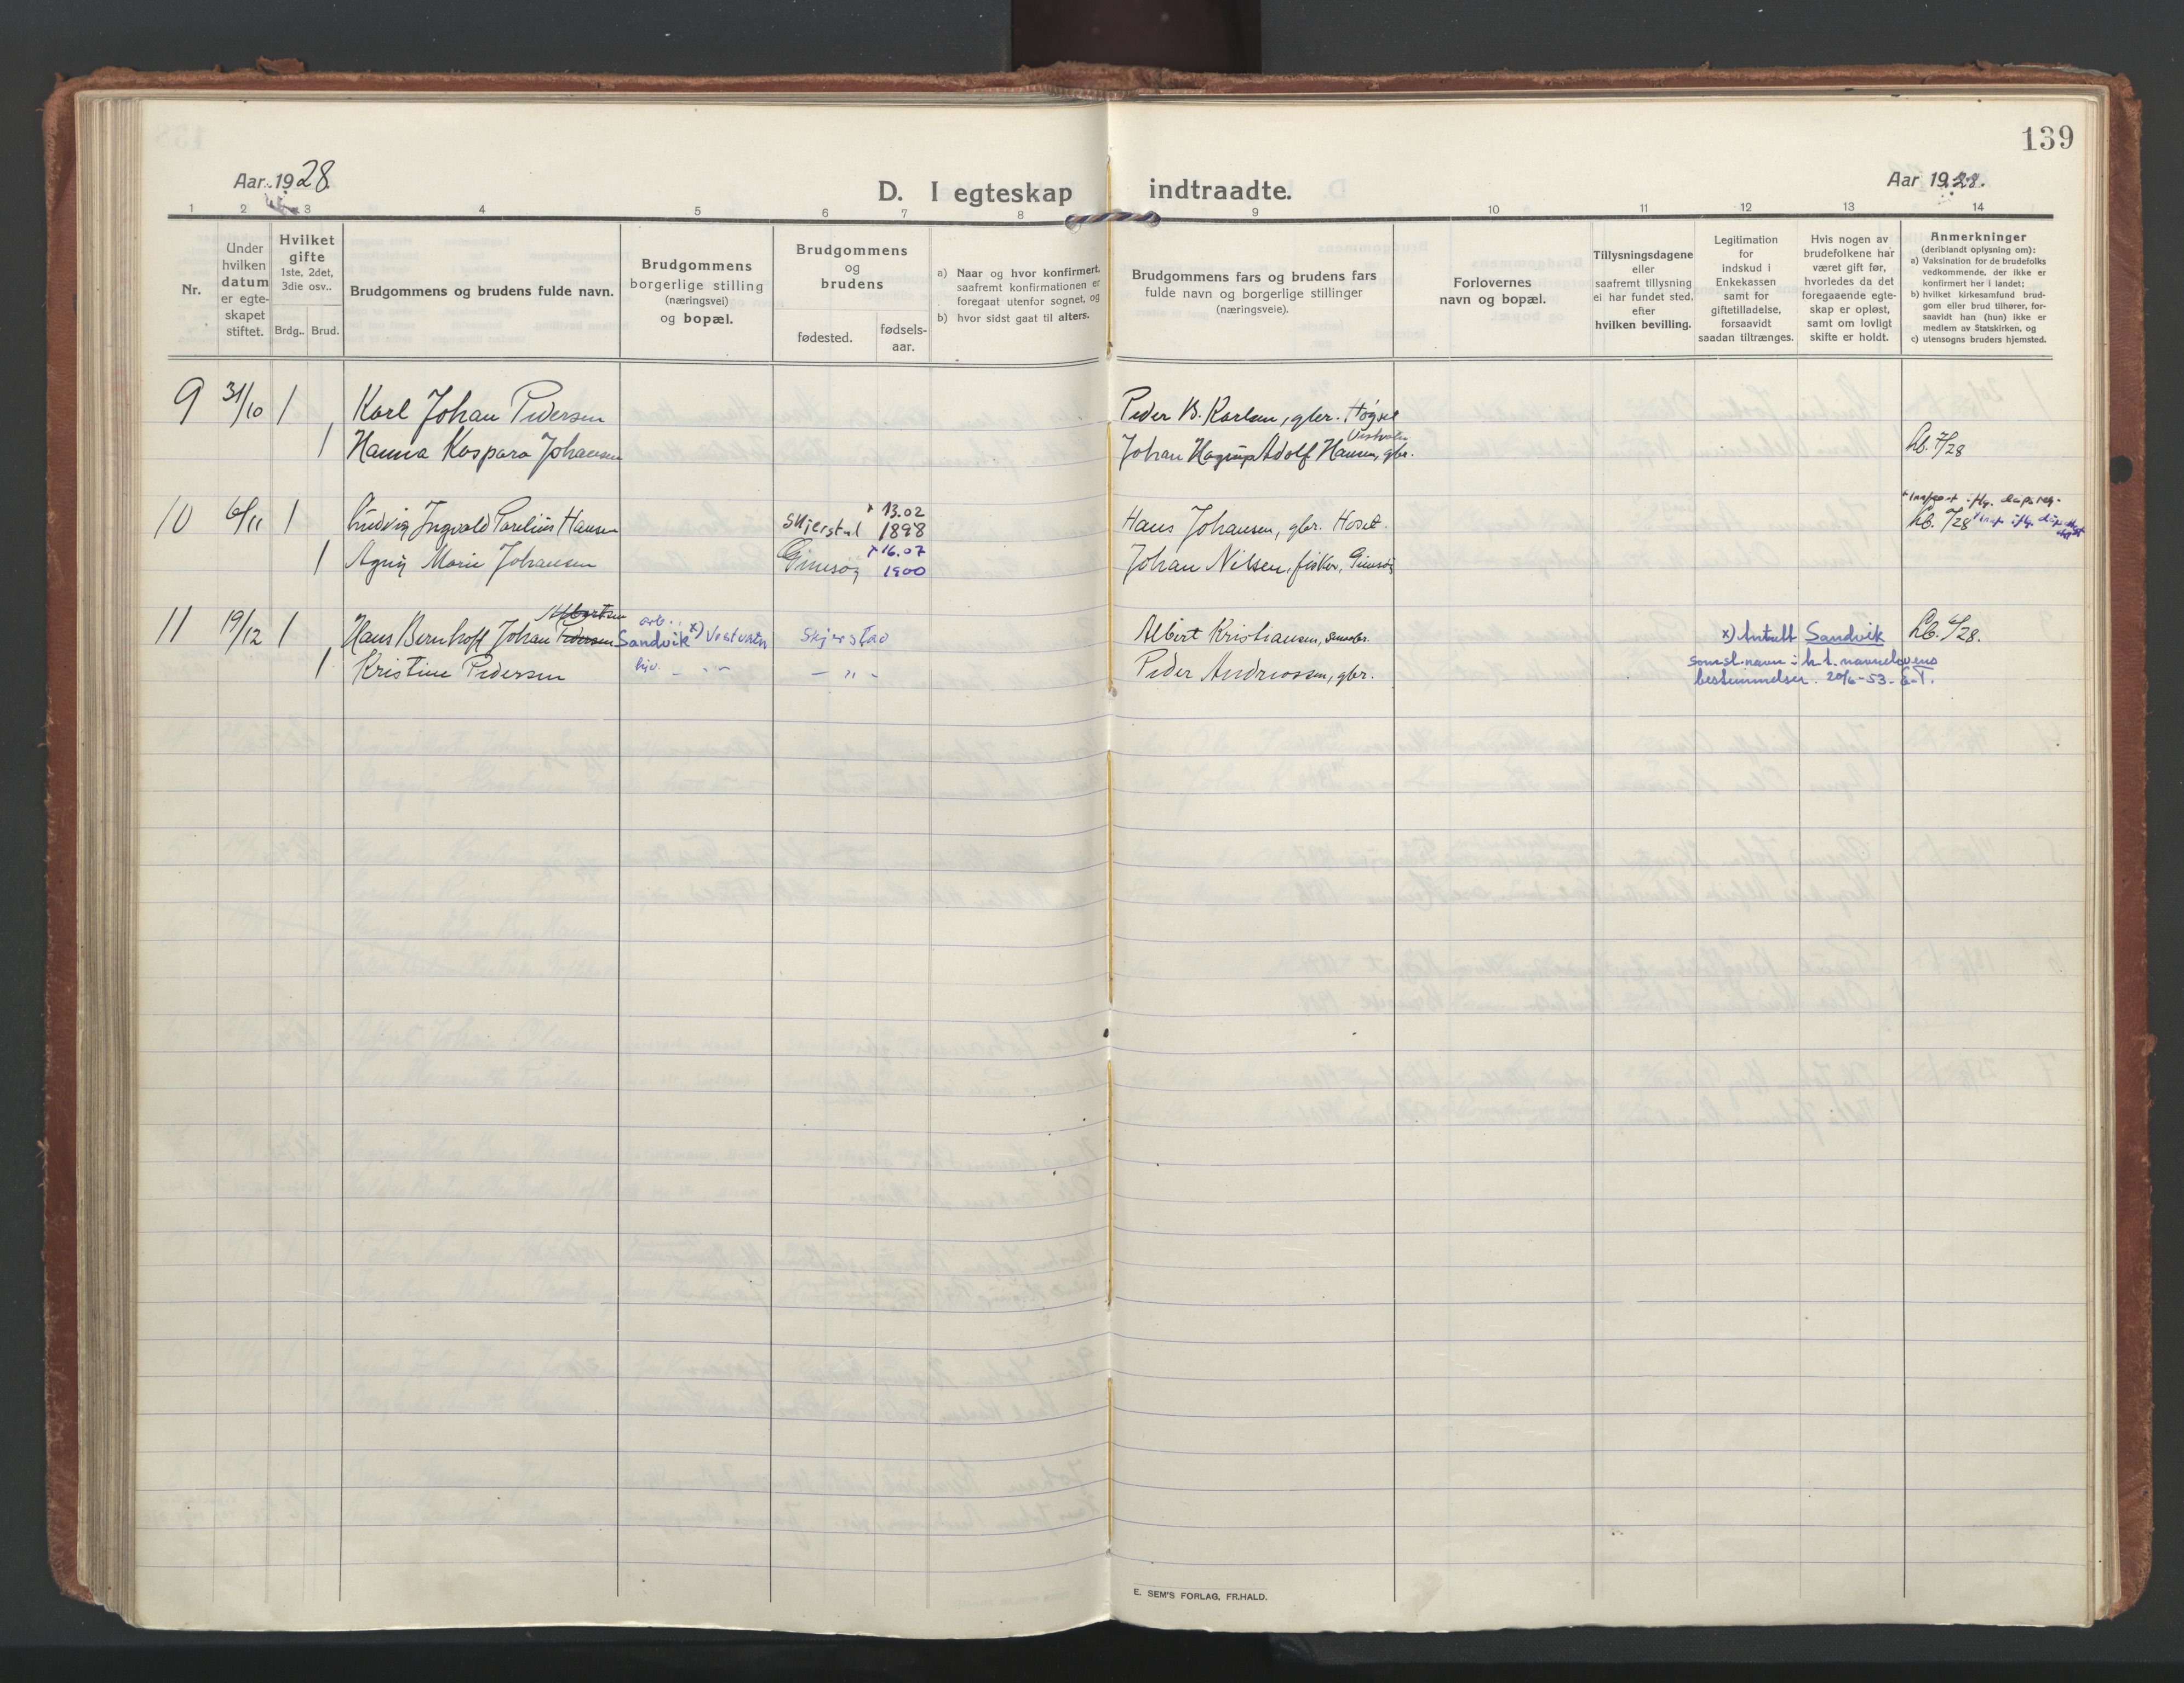 139
Aar 1928.
D. I egteskap indtraadte.
Aar 1928.
1 2 3 4 5 6 7 8 9 10 11 12 13 14
Nr.
Under
hvilken
datum
er egte-
skapet
stiftet.
Hvilket
gifte
1ste, 2det,
3die osv..
Brdg.. Brud.
Brudgommens og brudens fulde navn.
Brudgommens
borgerlige stilling
(næringsvei)
og bopæl.
Brudgommens
og
brudens
fødested.
fødsels-
aar.
a) Naar og hvor konfirmert,
saafremt konfirmationen er
foregaat utenfor sognet, og
b) hvor sidst gaat til alters.
Brudgommens fars og brudens fars
fulde navn og borgerlige stillinger
(næringsveie).
Forlovernes
navn og bopæl.
Tillysningsdagene
eller
saafremt tillysning
ei har fundet sted,
efter
hvilken bevilling.
Legitimation
for
indskud i
Enkekassen
samt for
giftetilladelse,
forsaavidt
saadan tiltrænges.
Hvis nogen av
brudefolkene har
været gift før,
hvorledes da det
foregaaende egte-
skap er opløst,
samt om lovligt
skifte er holdt.
Anmerkninger
(deriblandt oplysning om):
a) Vaksination for de brudefolks
vedkommende, der ikke er
konfirmert her i landet;
b) hvilket kirkesamfund brud-
gom eller brud tilhører, for-
saavidt han (hun) ikke er
medlem av Statskirken, og
c) utensogns bruders hjemsted.
9 31/10 1 Karl Johan Pedersen Peder B. Karlsen, gbr. Høgset
1 Hanna Kaspara Johansen Johan Hagrup Adolf Hansen, gbr. Vestvatn Lb. 7/28
10 6/11 1 Ludvig Ingvald Parelius Hansen Skjerstad x 13.02 1898 Hans Johansen, gbr. Hoset. Lb. /28
1 Agnes Marie Johansen Gimsøy x 16.07 1900 Johan Nilsen, fisker, Gimsøy
11 19/12 1 Hans Bernhoff Johan Pedersen Albertsen Sandvik x) arb. Vestvatn Skjerstad Albert Kristiansen, x) Antatt Sandvik Lb. 6/28.
1 Kristine Pedersen - " - - " - Peder Andreassen, gbr. som sl.navn i h. t. navnelovens
bestemmelser. 20/6-53-
E. SEM'S FORLAG, FR.HALD.